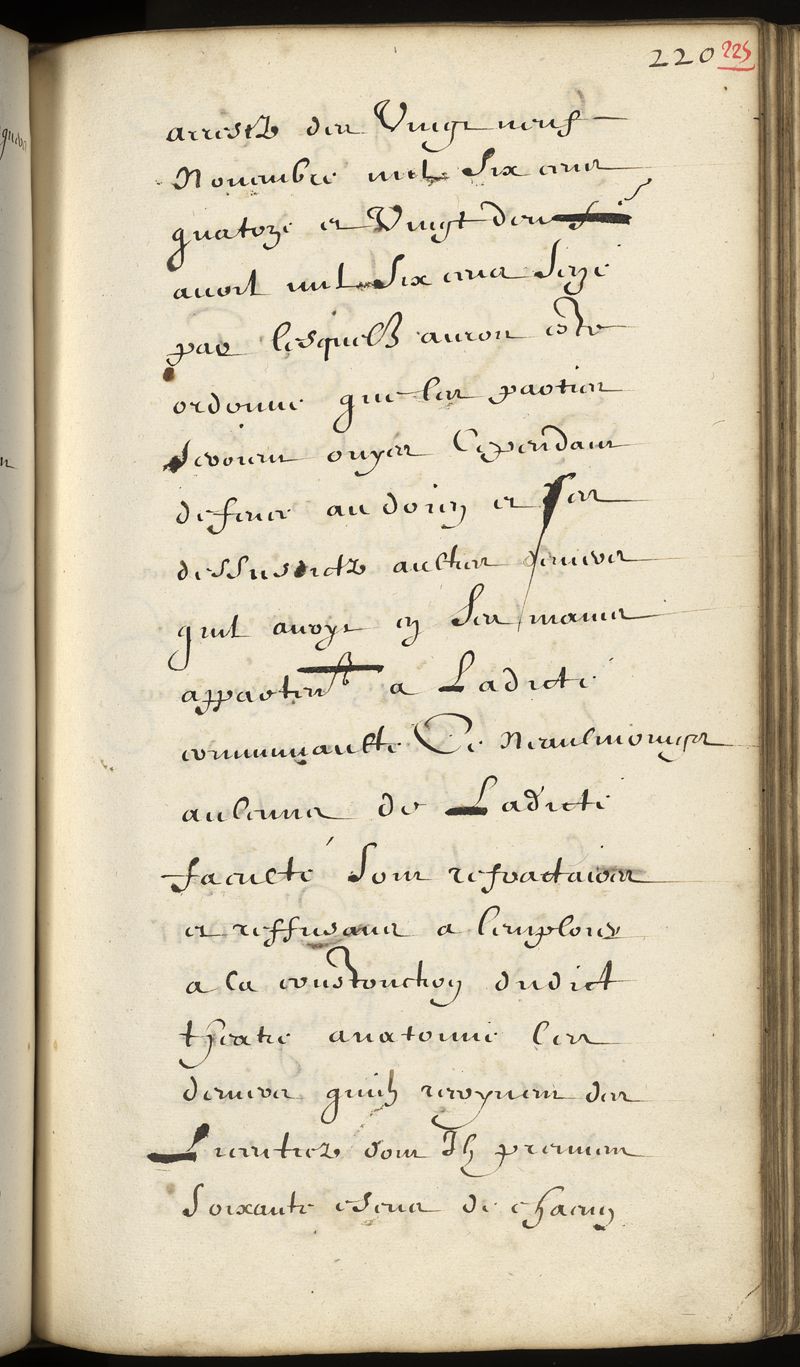 220 225
arrestz des Vingt neuf
Nouembre mil Six cens
quatorze et Vingt deux
auoil mil Six cens Seize
par lesquelz auroit este
ordonne que les parties
seroient ouyes Cependant
defence au doien et ses
dessusdictz aultres deniers
quil auoyt en Ses mains
appartenans a Ladicte
communaulte Ce Neaulmoingts
aulcuns de Ladicte
faculte Sont refractaires
et reffusans a lemploier
a la construction dudict
theatre anatomie les
deniers quilz recoyuent des
Licentiez dont Ilz prennent
Soixante escus de chacun